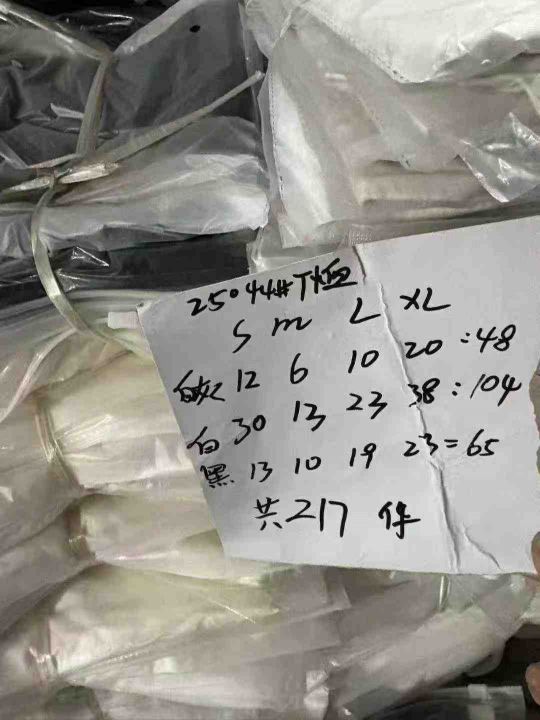 25044#T恤
S m L XL
12 6 10 20 :48
白 30 13 23 38 : 104
黑 13 10 19 23 = 65
共217件